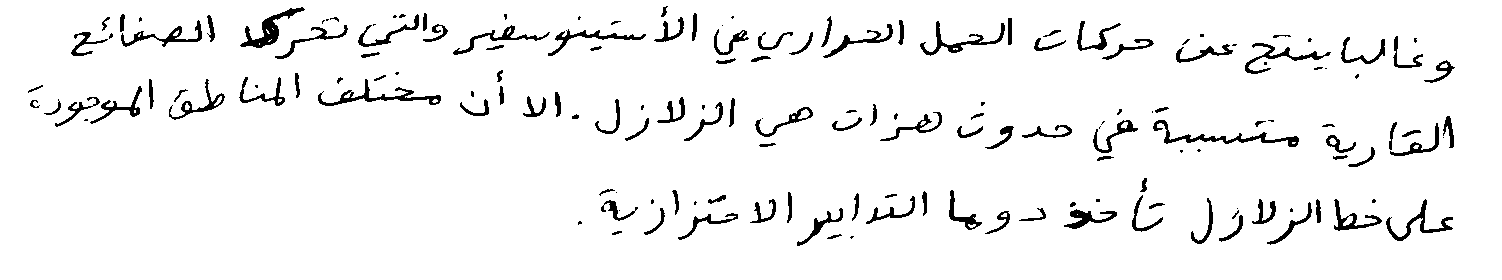 وغالبا ينتج عن حركات الحمل الحراري في الأستينوسفير والتي تحرك الصفائح
القارية متسببة في حدوث هزات هي الزلازل. الا أن مختلف المناطق الموجودة
على خط الزلازل تأخذ دوما التدابير الاحترازية.